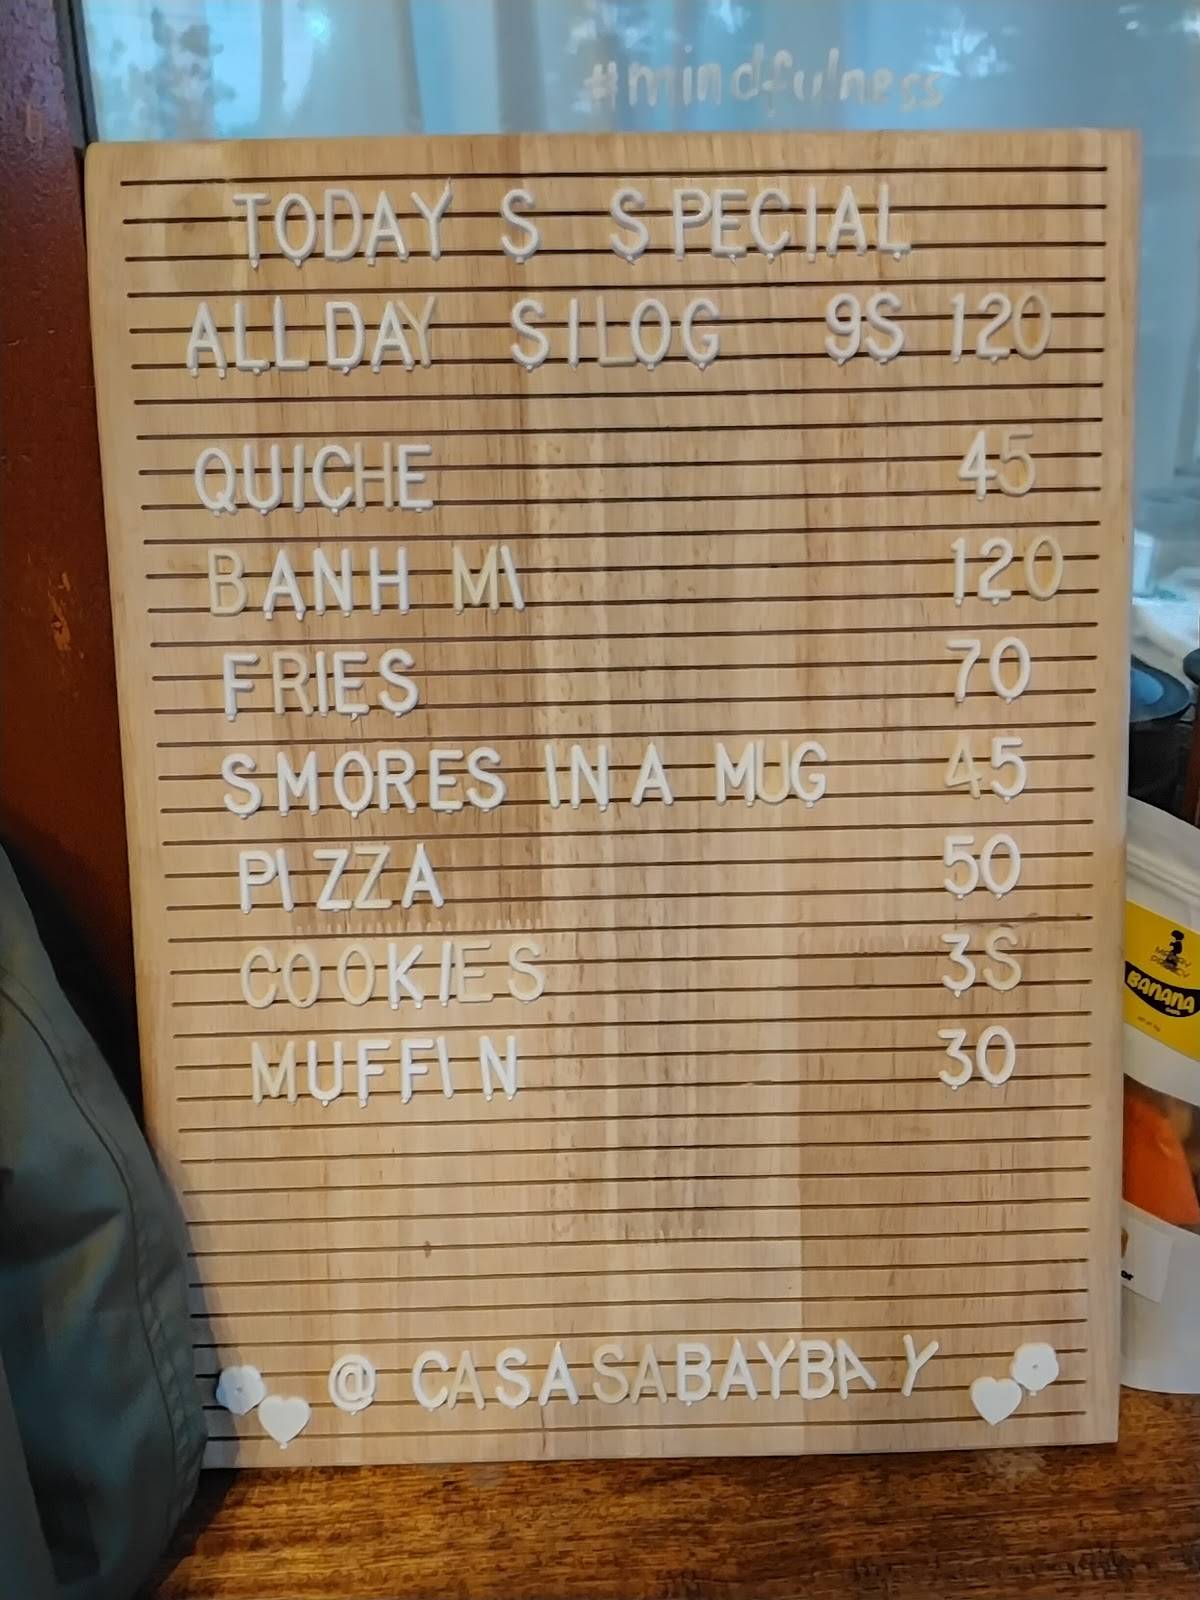 #mindfulness
TODAY S SPECIAL
ALL DAY SILOG 9S 120
QUICHE 45
BANH MI 120
FRIES 70
SMORES IN A MUG 45
PIZZA 50
COOKIES 3S
MUFFIN 30
@ CASASABAYBAY
BANANA